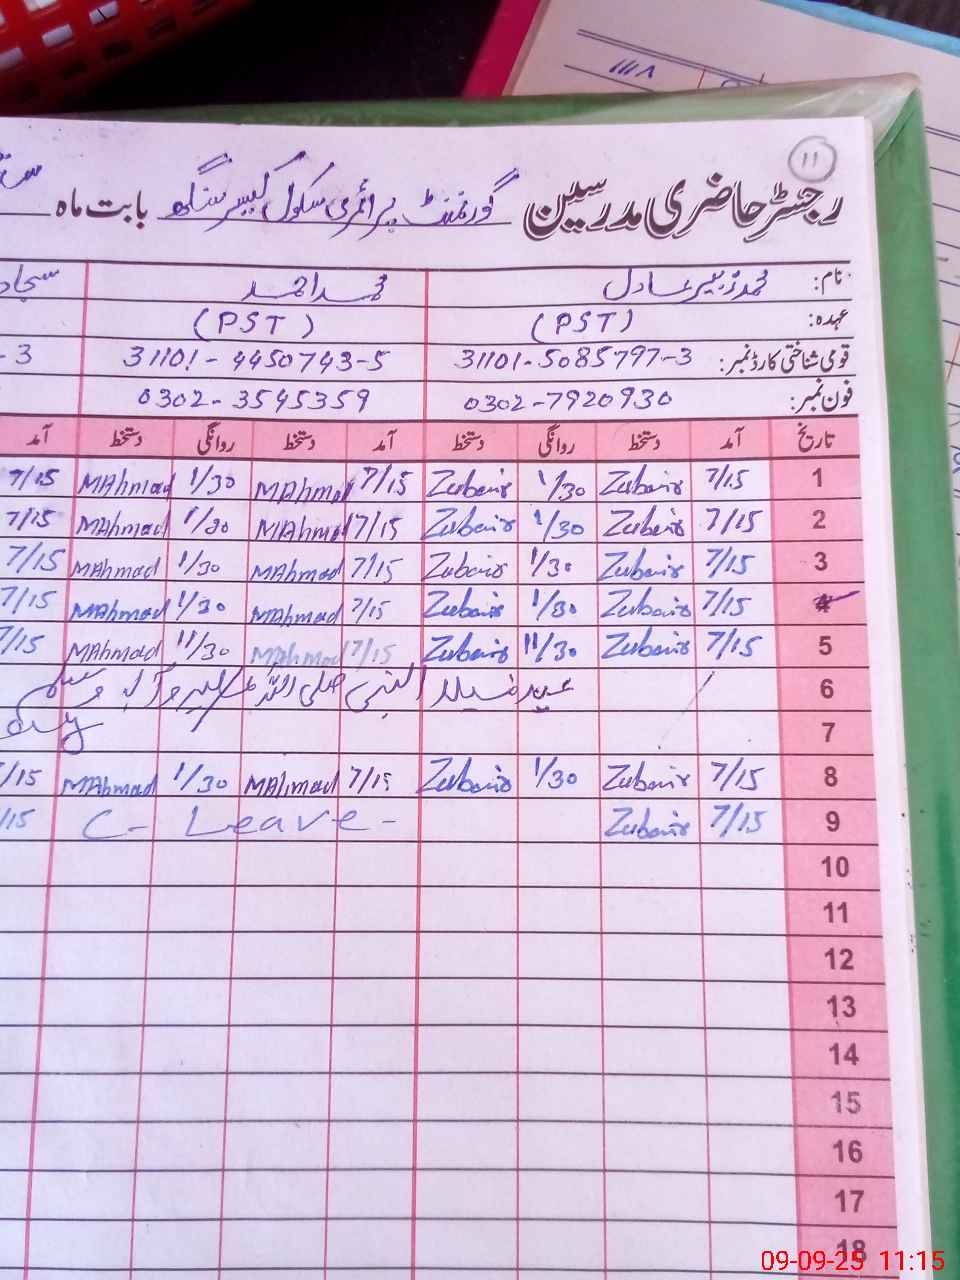 ۱۱
رجسٹر حاضری مدرسین گورنمنٹ پرائمری سکول کیسر سنگھ بابت ماہ
نام: محمد زبیر عادل محمد احمد سجاد
عہدہ: (PST) (PST)
قومی شناختی کارڈ نمبر: 31101-5085797-3 31101-4450743-5 -3
فون نمبر: 0302-7920930 0302-3545359
تاریخ آمد دستخط روانگی دستخط آمد دستخط روانگی دستخط آمد
1 7/15 Zubair 1/30 Zubair 7/15 MAhmad 1/30 MAhmad 7/15
2 7/15 Zubair 1/30 Zubair 7/15 MAhmad 1/30 MAhmad 7/15
3 7/15 Zubair 1/30 Zubair 7/15 MAhmad 1/30 MAhmad 7/15
4 7/15 Zubair 1/30 Zubair 7/15 MAhmad 1/30 MAhmad 7/15
5 7/15 Zubair 11/30 Zubair 7/15 MAhmad 11/30 MAhmad 7/15
6 عید میلاد النبی صلی اللہ علیہ وآلہ وسلم
7
8 7/15 Zubair 1/30 Zubair 7/15 MAhmad 1/30 MAhmad 7/15
9 7/15 Zubair C- Leave- /15
10
11
12
13
14
15
16
17
18
09-09-25 11:15